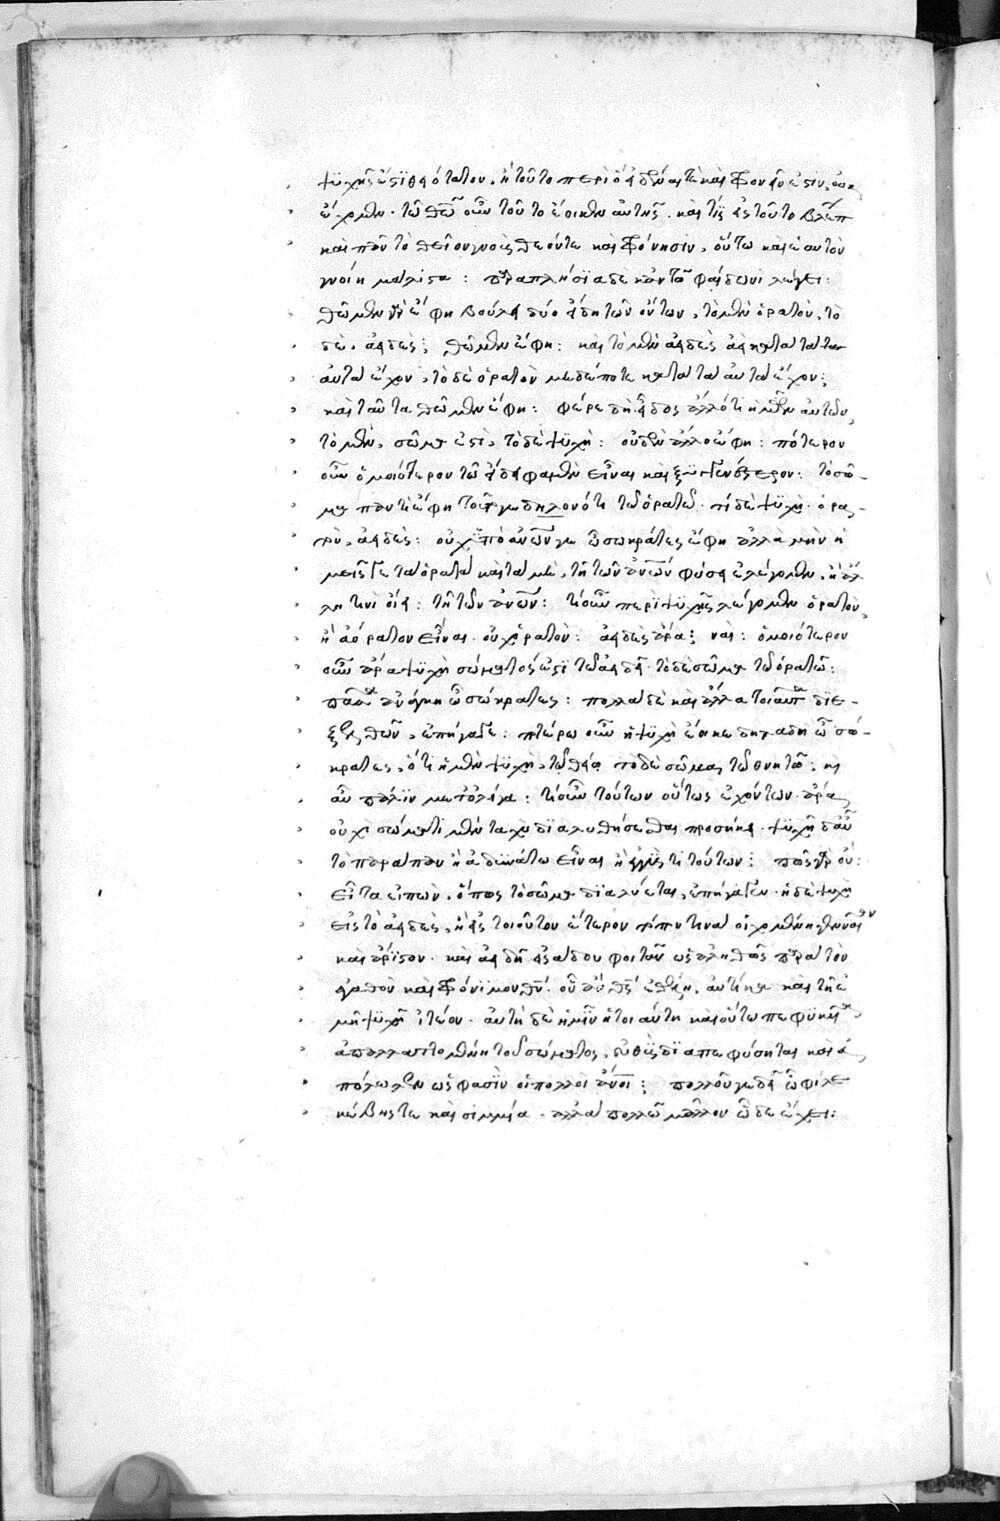 ψυχῆς ἐστὶ θειότατον, ἢ τοῦτο περὶ ὃ εἰδέναι τὲ καὶ φρονεῖν ἐστὶν, οὐκ
ἔχομεν. τῶ θεῶ οὖν τοῦτο ἔοικεν αὐτῆς. καὶ τίς εἰς τοῦτο βλέπων
καὶ πᾶν τὸ θεῖον γνοὺς θεόν τε καὶ φρόνησιν, οὕτω καὶ ἑαυτὸν
γνοίη μάλιστα: παραπλήσια δὲ κἀν τῶ φαίδωνι λέγει:
θῶμεν γὰρ ἔφη βούλει δύο εἴδη τῶν ὄντων, τὸ μὲν ὁρατὸν, τὸ
δὲ, ἀειδές; θῶμεν ἔφη: καὶ τὸ μὲν ἀειδὲς ἀεὶ κατὰ τὰ
αὐτὰ ἔχον, τὸ δὲ ὁρατὸν μηδέποτε κατὰ τὰ αὐτὰ ἔχον:
καὶ ταῦτα θῶμεν ἔφη: φέρε δὴ εἶδος ἄλλό τι ἡμῶν αὐτῶν
τὸ μὲν, σῶμα ἐστὶ, τὸ δὲ ψυχὴ: οὐδὲν ἄλλο ἔφη: πότερον
οὖν ὁμοιότερον τῶ εἴδει φαμὲν εἶναι καὶ ξυγγενέστερον: τὸ σῶ-
μα παντὶ ἔφη τοῦτό γε δηλονότι τῶ ὁρατῶ. τί δὲ ψυχὴ. ὁρα-
τὸν, ἀειδές: οὐχ ὑπὸ ἀνων γε ὦ σώκρατες ἔφη ἀλλὰ μὴν ἡ
μεῖς γε τὰ ὁρατὰ καὶ τὰ μὴ, τῆ τῶν ἀνων φύσει ἐλέγομεν, ἢ ἄλ
λη τινὶ οἴει: τῆ τῶν ἀνων: τί οὖν περὶ ψυχῆς λέγομεν ὁρατὸν
ἢ ἀόρατον εἶναι. οὐχ ὁρατὸν: ἀειδὲς ἄρα; ναὶ: ὁμοιότερον
οὖν ἄρα ψυχὴ σώματός ἐστι τῶ ἀειδεῖ. τὸ δὲ σῶμα τῶ ὁρατῶ:
πᾶσα ἀνάγκη ὦ σώκρατες: πολλὰ δὲ καὶ ἄλλα τοιαῦτα διε-
ξελθὼν, ἐπήγαγε: ποτέρω οὖν ἡ ψυχὴ ἔοικε δῆλα δὴ ὦ σώ-
κρατες, ὅτι ἡ μὲν ψυχὴ, τῶ θείω τὸ δὲ σῶμα, τῶ θνητῶ. καὶ
αὖ πάλιν μετ' ὀλίγα: τί οὖν τούτων οὕτως ἐχόντων. ἆρα
οὐχὶ σώματι μὲν ταχὺ διαλυθήσεσθαι προσήκει. ψυχῆ δ' αὖ
τὸ παράπαν ἢ ἀδυνάτω εἶναι ἢ ἐγγύς τι τούτων: πῶς γὰρ οὔ:
εἶτα εἰπὼν, ὅπως τὸ σῶμα διαλύεται, ἐπήγαγεν. ἡ δὲ ψυχὴ
εἰς τὸ ἀειδὲς, ἢ εἰς τοιοῦτον ἕτερον τόπον τινὰ οἰχομένη γενναῖον
καὶ ἄριστον. καὶ ἀειδῆ εἰς ἅδου φοιτᾶν ὡς ἀληθῶς παρὰ τὸν
ἀγαθὸν καὶ φρόνιμον θν. οὗ ἂν θς ἐθέλη, αὐτίκα καὶ τῆ ἐ
μῆ ψυχῆ ἰτέον. αὐτὴ δὲ ἡμῖν ἤτοι αὐτὴ καὶ οὕτω πεφυκυῖα
ἀπαλλαττομένη τοῦ σώματος, εὐθὺς διαπεφύσηται καὶ ἀ
πόλωλεν ὥς φασὶν οἱ πολλοὶ ἄνοι; πολλοῦ γε δεῖ ὦ φίλε
κέβης τε καὶ σιμμία. ἀλλὰ πολλῶ μᾶλλον ὧδε ἔχει: